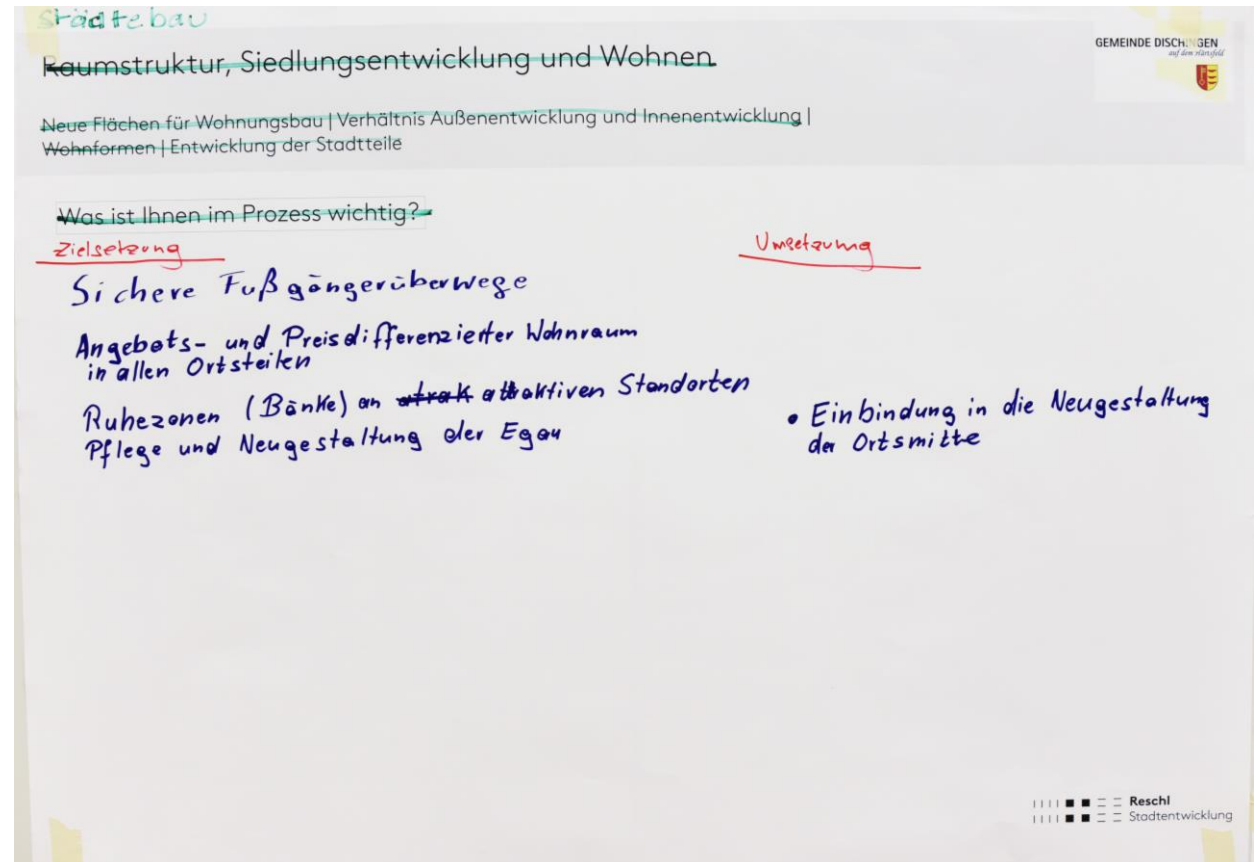 Städtebau
Raumstruktur, Siedlungsentwicklung und Wohnen
GEMEINDE DISCHINGEN
auf dem Härtsfeld
Neue Flächen für Wohnungsbau | Verhältnis Außenentwicklung und Innenentwicklung |
Wohnformen | Entwicklung der Stadtteile
Was ist Ihnen im Prozess wichtig?
Zielsetzung
Umsetzung
Sichere Fußgängerüberwege
Angebots- und Preisdifferenzierter Wohnraum
in allen Ortsteilen
Ruhezonen (Bänke) an atrak attraktiven Standorten
Pflege und Neugestaltung der Egau
• Einbindung in die Neugestaltung
der Ortsmitte
Reschl
Stadtentwicklung